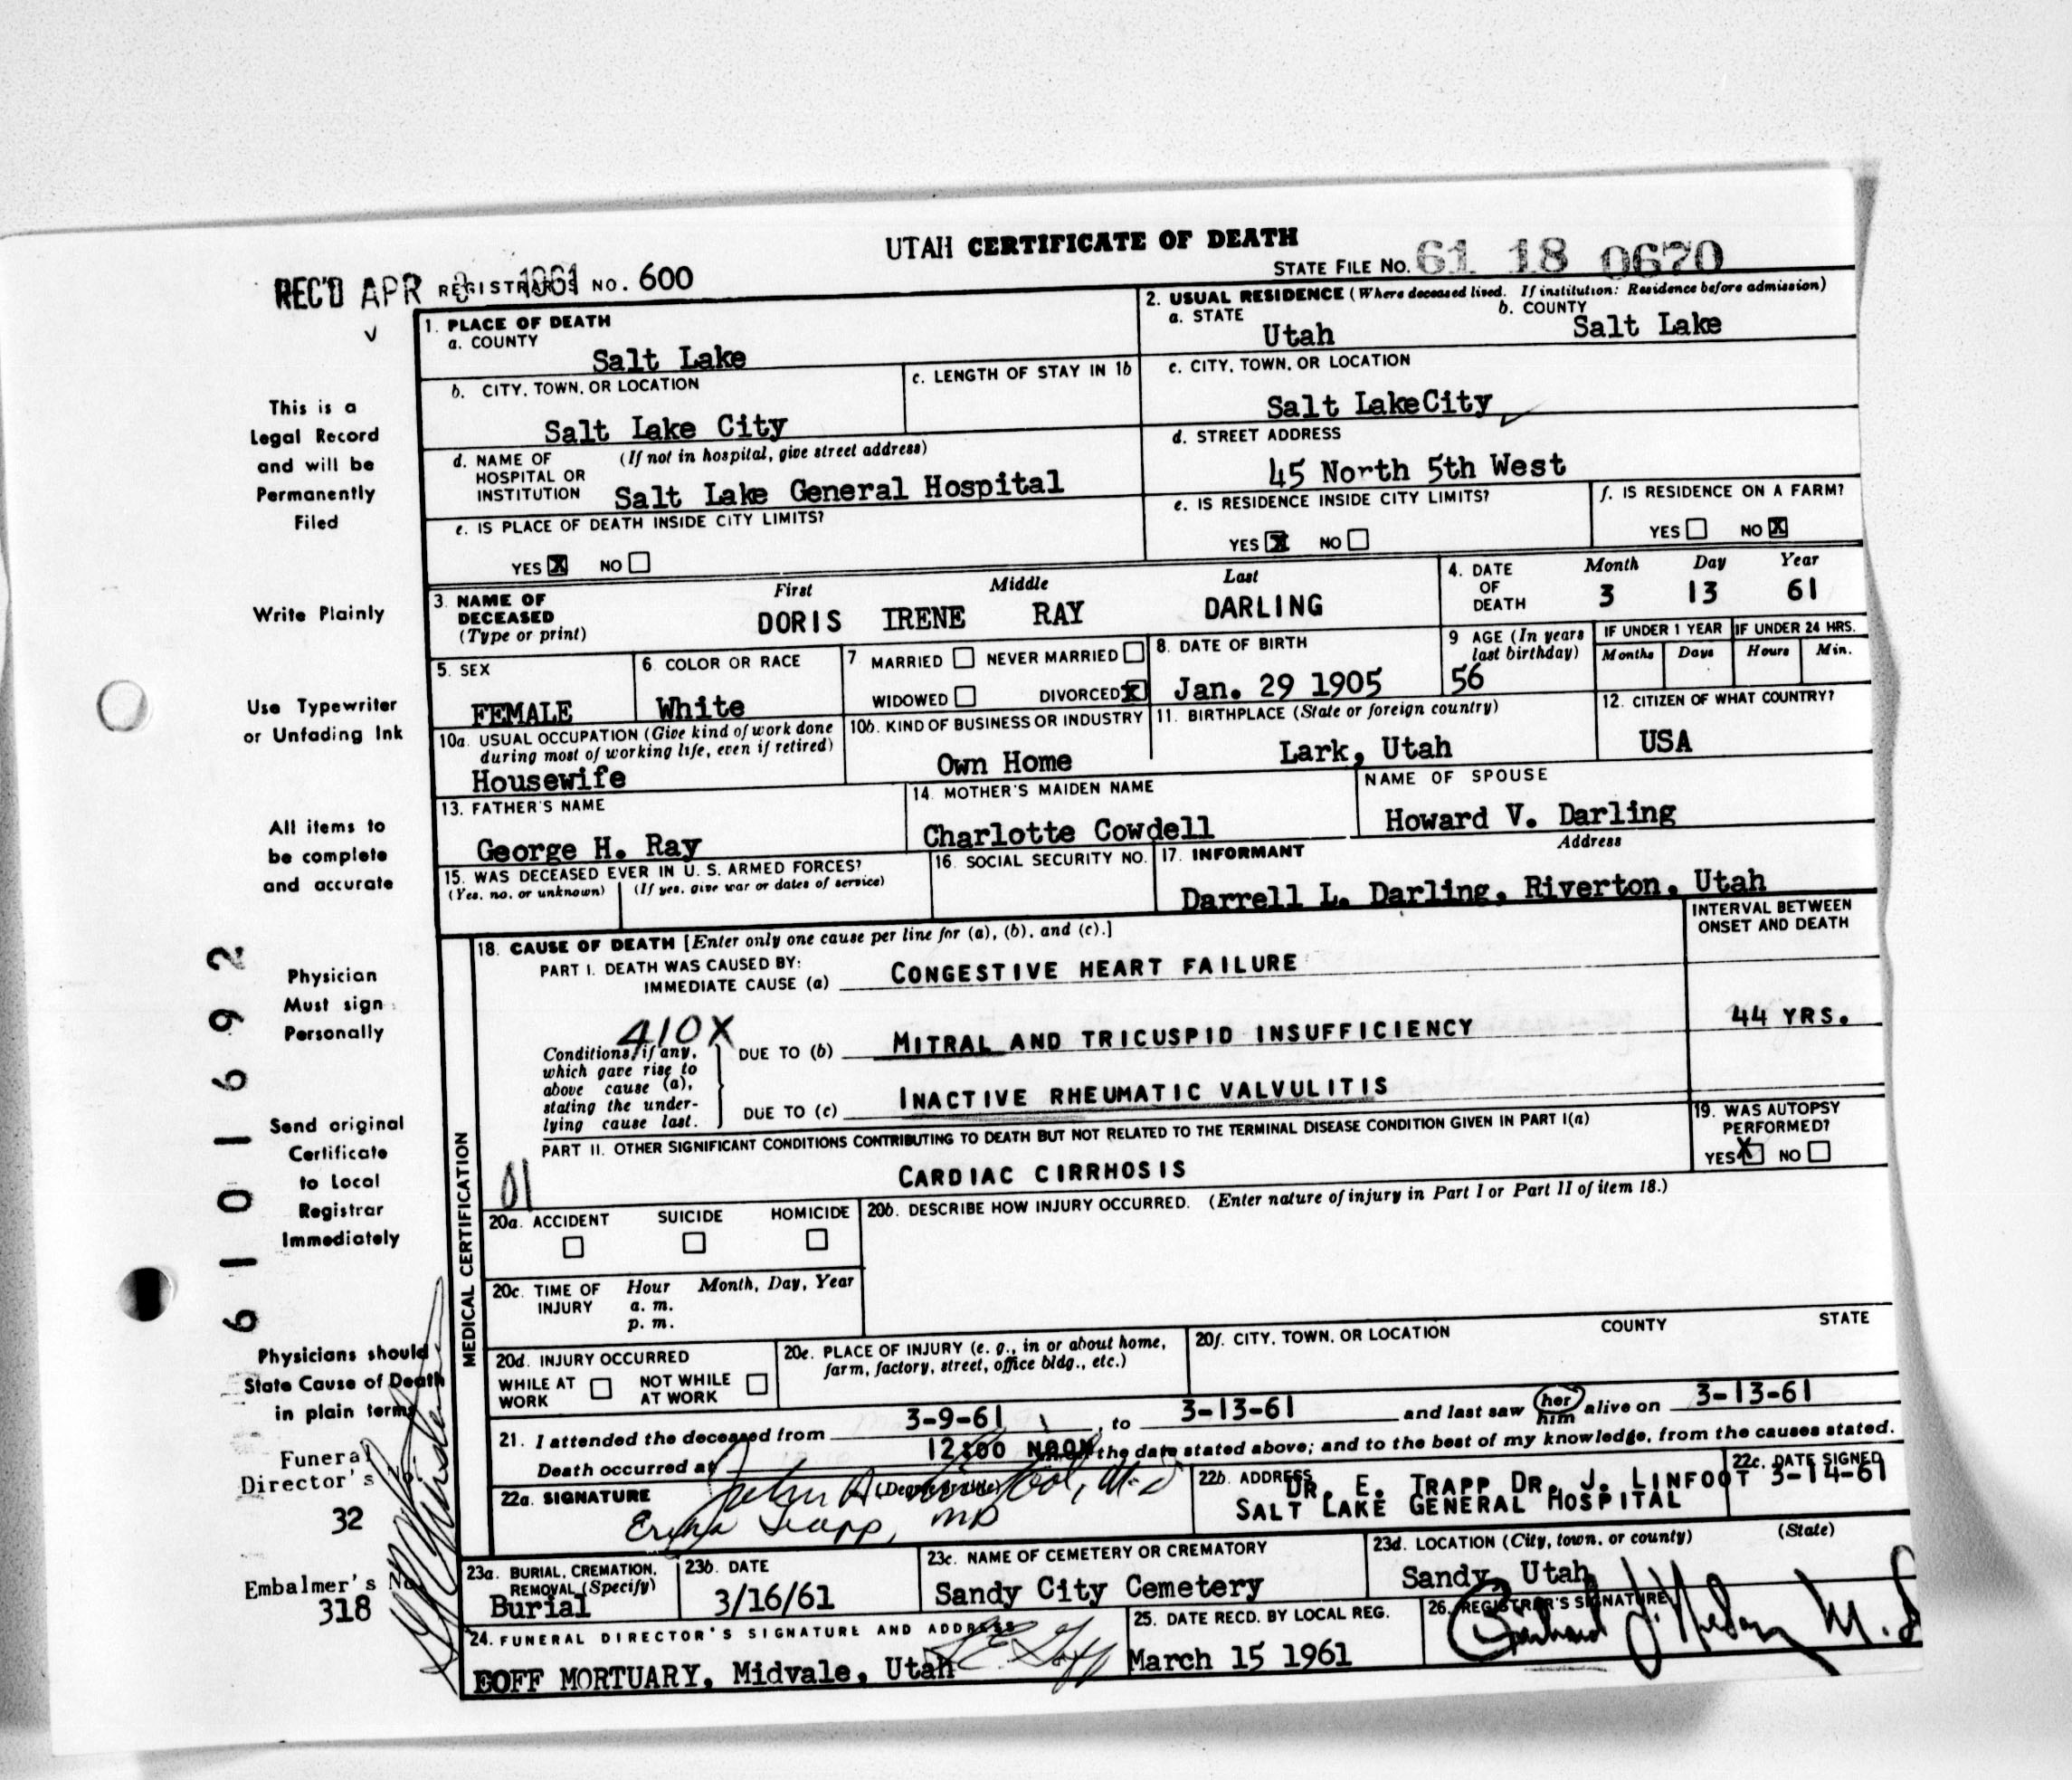 UTAH CERTIFICATE OF DEATH
REC'D APR 1961 REGISTRAR'S NO. 600
STATE FILE NO. 61 18 0670
1. PLACE OF DEATH
a. COUNTY
Salt Lake
2. USUAL RESIDENCE (Where deceased lived. If institution: Residence before admission)
a. STATE b. COUNTY
Utah Salt Lake
b. CITY, TOWN, OR LOCATION
Salt Lake City
c. LENGTH OF STAY IN 1b
c. CITY, TOWN, OR LOCATION
Salt LakeCity
d. NAME OF (If not in hospital, give street address)
HOSPITAL OR
INSTITUTION Salt Lake General Hospital
d. STREET ADDRESS
45 North 5th West
e. IS PLACE OF DEATH INSIDE CITY LIMITS?
YES X NO
e. IS RESIDENCE INSIDE CITY LIMITS?
YES X NO
f. IS RESIDENCE ON A FARM?
YES NO X
3. NAME OF
DECEASED
(Type or print)
First Middle Last
DORIS IRENE RAY DARLING
4. DATE
OF
DEATH
Month Day Year
3 13 61
5. SEX
FEMALE
6. COLOR OR RACE
White
7 MARRIED NEVER MARRIED
WIDOWED DIVORCED X
8. DATE OF BIRTH
Jan. 29 1905
9 AGE (In years
last birthday)
56
IF UNDER 1 YEAR IF UNDER 24 HRS.
Months Days Hours Min.
10a. USUAL OCCUPATION (Give kind of work done
during most of working life, even if retired)
Housewife
10b. KIND OF BUSINESS OR INDUSTRY
Own Home
11. BIRTHPLACE (State or foreign country)
Lark, Utah
12. CITIZEN OF WHAT COUNTRY?
USA
13. FATHER'S NAME
George H. Ray
14. MOTHER'S MAIDEN NAME
Charlotte Cowdell
NAME OF SPOUSE
Howard V. Darling
15. WAS DECEASED EVER IN U. S. ARMED FORCES?
(Yes, no, or unknown) (If yes, give war or dates of service)
16. SOCIAL SECURITY NO.
17. INFORMANT Address
Darrell L. Darling, Riverton, Utah
18. CAUSE OF DEATH [Enter only one cause per line for (a), (b), and (c).]
INTERVAL BETWEEN
ONSET AND DEATH
PART I. DEATH WAS CAUSED BY:
IMMEDIATE CAUSE (a) CONGESTIVE HEART FAILURE
410X
Conditions, if any,
which gave rise to
above cause (a),
stating the under-
lying cause last.
DUE TO (b) MITRAL AND TRICUSPID INSUFFICIENCY 44 YRS.
DUE TO (c) INACTIVE RHEUMATIC VALVULITIS
PART II. OTHER SIGNIFICANT CONDITIONS CONTRIBUTING TO DEATH BUT NOT RELATED TO THE TERMINAL DISEASE CONDITION GIVEN IN PART I(a)
01
CARDIAC CIRRHOSIS
19. WAS AUTOPSY
PERFORMED?
YES X NO
MEDICAL CERTIFICATION
20a. ACCIDENT SUICIDE HOMICIDE
20b. DESCRIBE HOW INJURY OCCURRED. (Enter nature of injury in Part I or Part II of item 18.)
20c. TIME OF Hour Month, Day, Year
INJURY a. m.
p. m.
20d. INJURY OCCURRED
WHILE AT NOT WHILE
WORK AT WORK
20e. PLACE OF INJURY (e. g., in or about home,
farm, factory, street, office bldg., etc.)
20f. CITY, TOWN, OR LOCATION COUNTY STATE
21. I attended the deceased from 3-9-61, to 3-13-61 and last saw her him alive on 3-13-61
Death occurred at 12:00 NOON the date stated above; and to the best of my knowledge, from the causes stated.
22a. SIGNATURE (Degree or title)
22b. ADDRESS
DR. E. TRAPP DR. J. LINFOOT
SALT LAKE GENERAL HOSPITAL
22c. DATE SIGNED
3-14-61
23a. BURIAL, CREMATION,
REMOVAL (Specify)
Burial
23b. DATE
3/16/61
23c. NAME OF CEMETERY OR CREMATORY
Sandy City Cemetery
23d. LOCATION (City, town, or county) (State)
Sandy, Utah
24. FUNERAL DIRECTOR'S SIGNATURE AND ADDRESS
EOFF MORTUARY, Midvale, Utah
25. DATE RECD. BY LOCAL REG.
March 15 1961
26. REGISTRAR'S SIGNATURE
This is a
Legal Record
and will be
Permanently
Filed
Write Plainly
Use Typewriter
or Unfading Ink
All items to
be complete
and accurate
Physician
Must sign
Personally
Send original
Certificate
to Local
Registrar
Immediately
Physicians should
State Cause of Death
in plain terms
Funeral
Director's No.
32
Embalmer's No.
318
610 1692